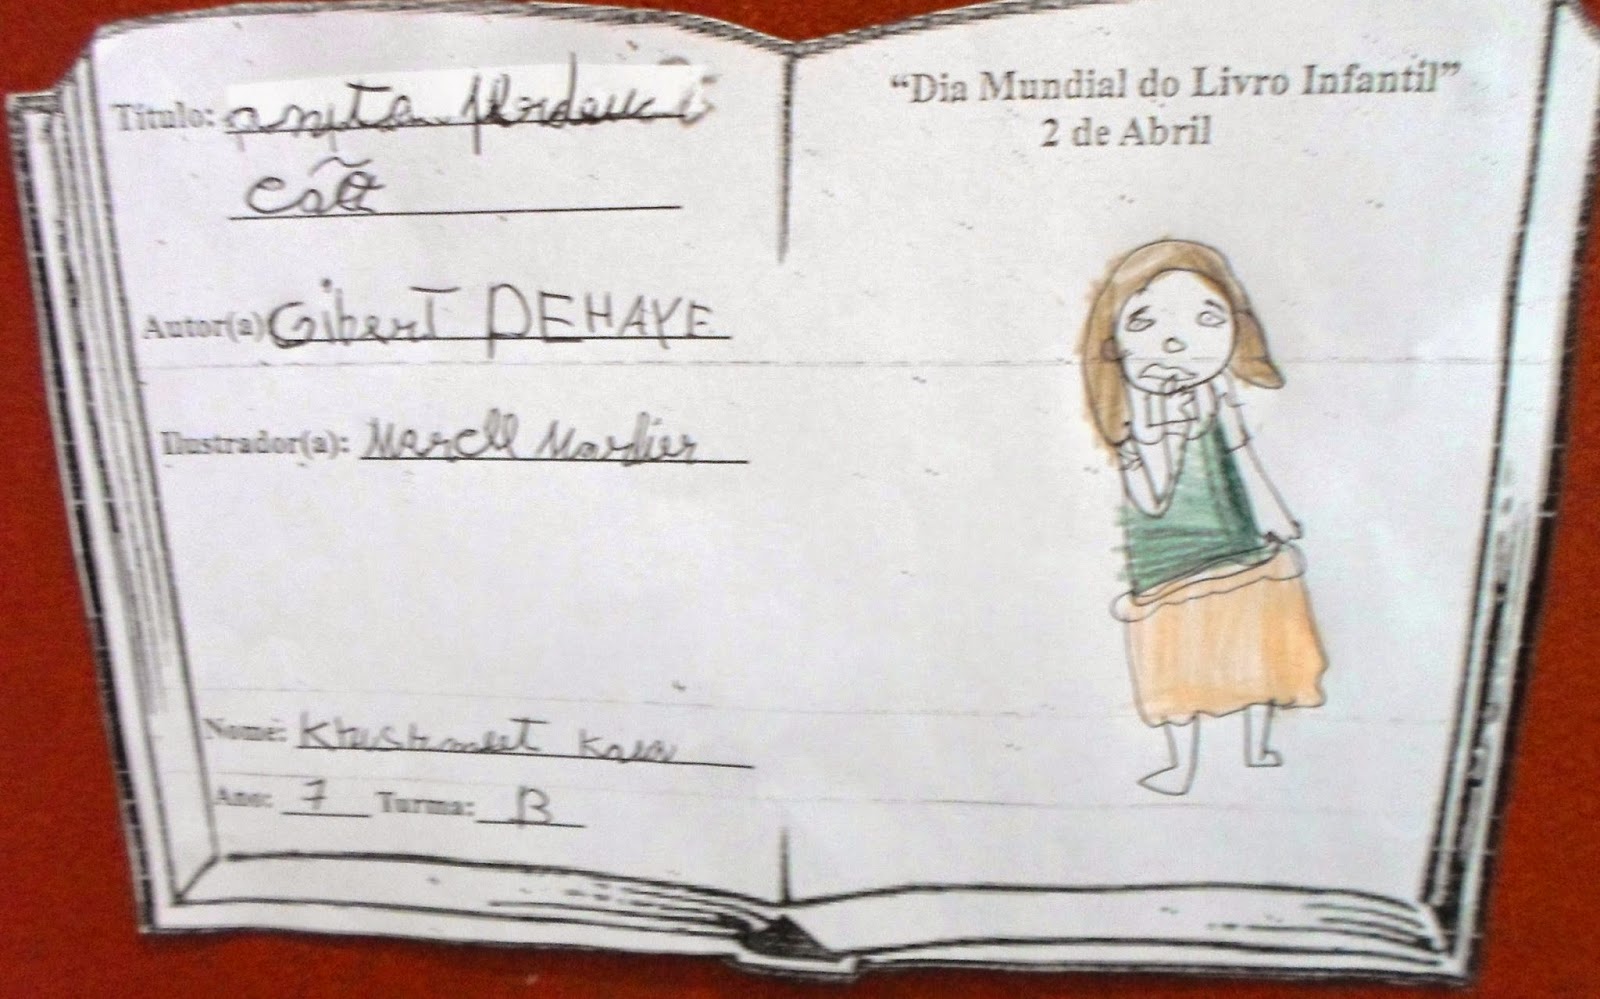 Título: anita perdeu o
cão
Autor(a) Gibert DEHAYE
Ilustrador(a): Marcel Marlier
Nome: Khushmeet Kaur
Ano: 7 Turma: B
“Dia Mundial do Livro Infantil”
2 de Abril